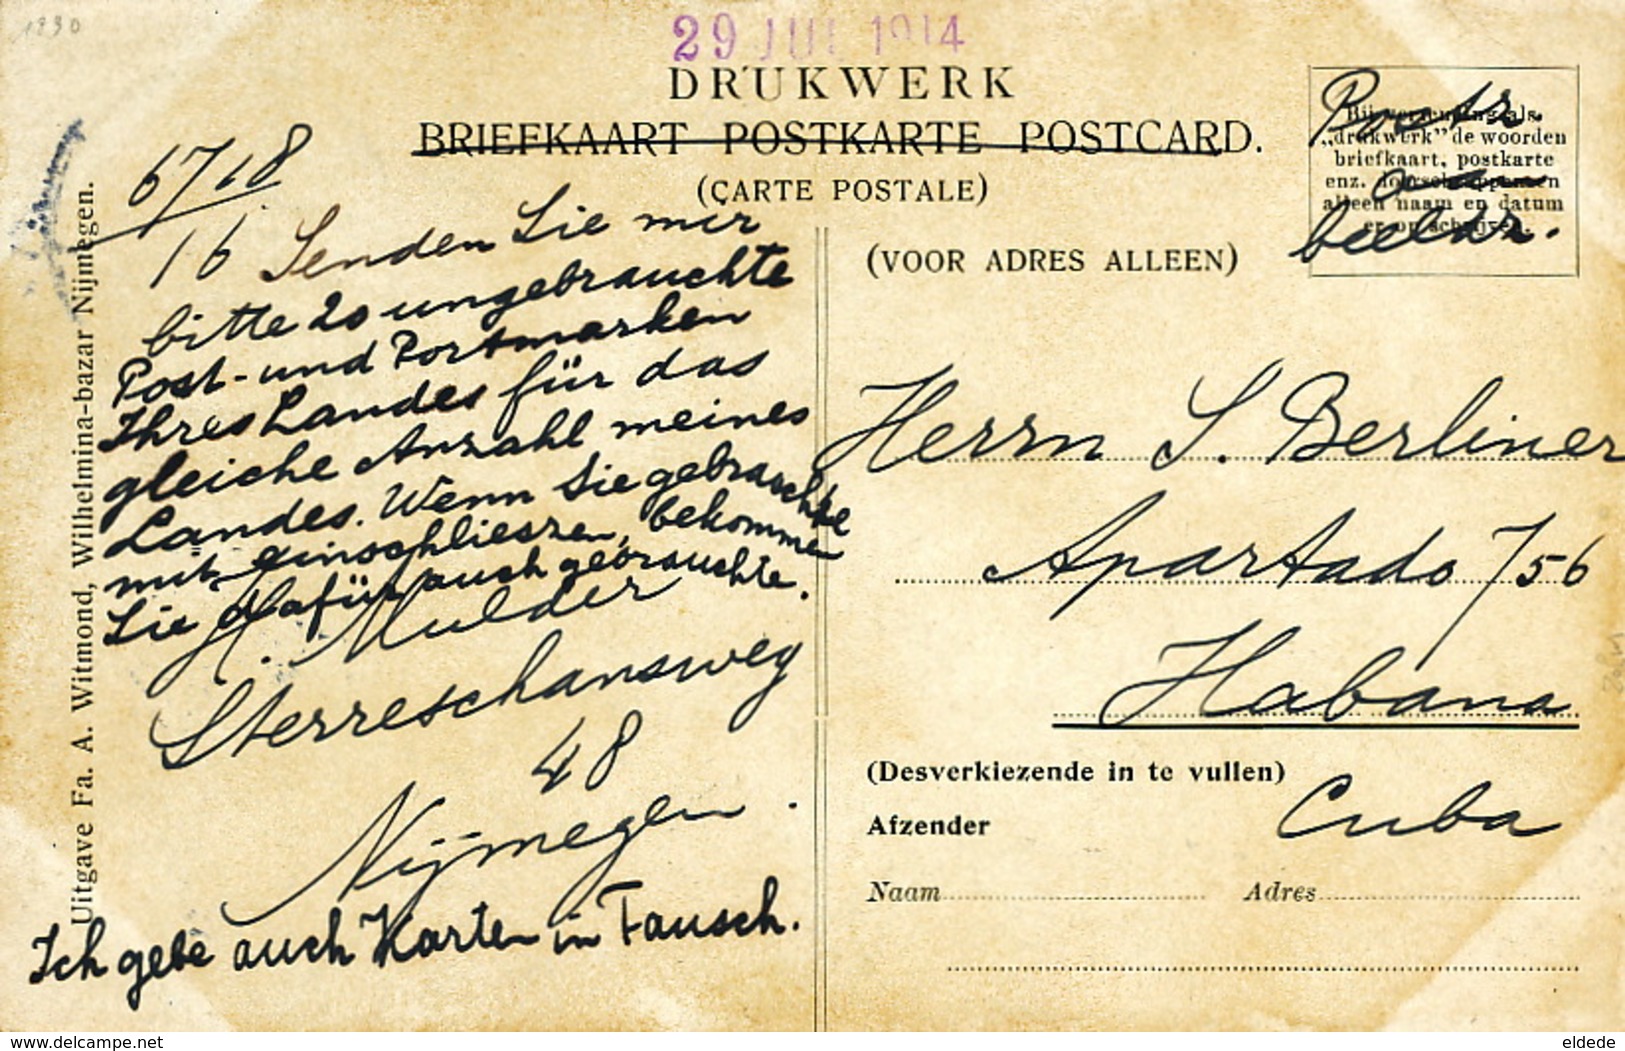 1930
29 JUL 1914
DRUKWERK
BRIEFKAART POSTKARTE POSTCARD.
(CARTE POSTALE)
(VOOR ADRES ALLEEN)
Bij verzending als
„drukwerk" de woorden
briefkaart, postkarte
enz. doorschrappen en
alleen naam en datum
er op schrijven.
Postz.
beeldz.
Uitgave Fa. A. Witmond, Wilhelmina-bazar Nijmegen.
6718
16 Senden Sie mir
bitte 20 ungebrauchte
Post- und Portmarken
Ihres Landes für das
gleiche Anzahl meines
Landes. Wenn Sie gebrauchte
mit einschlieszen, bekomme
Sie dafür auch gebrauchte.
H. Mulder
Sterreschansweg
48
Nijmegen.
Ich gebe auch Karten in Tausch.
Herrn S. Berliner
Apartado 756
Habana
Cuba
(Desverkiezende in te vullen)
Afzender
Naam Adres
delcampe.net
eldede